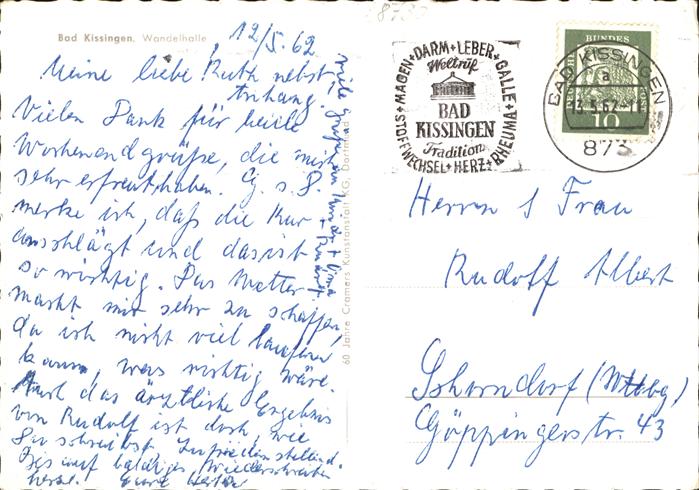 Bad Kissingen. Wandelhalle
12/5.62
Meine liebe Ruth nebst
Anhang.
Vielen Dank für beide
Wochenendgrüße, die mich
sehr erfreut haben. G. s. D.
merke ich, daß die Kur
anschlägt und das ist
so wichtig. Das Wetter
macht mir sehr zu schaffen,
da ich nicht viel laufen
kann, was richtig wäre.
Auch das ärztliche Ergebnis
von Rudolf ist doch, wie
Du schreibst zufriedenstellend.
Bis auf baldiges Wiederschreiben
herzl. Eure
viele
60 Jahre Cramers Kunstanstalt KG, Dortmund
STOFFWECHSEL+MAGEN+DARM+LEBER+GALLE+RHEUMA+HERZ
Weltruf
BAD
KISSINGEN
Tradition
DEUTSCHE BUNDESPOST
10
BAD KISSINGEN
a
13.5.62-11
873
Herrn & Frau
Rudolf Albert
Schorndorf (Wttbg)
Göppingerstr. 43